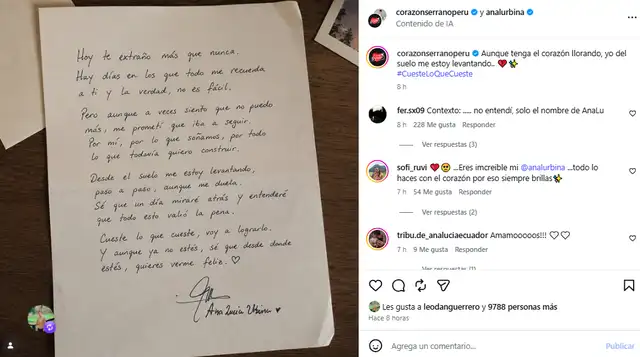 Hoy te extraño más que nunca.
Hay días en los que todo me recuerda
a ti y la verdad, no es fácil.
Pero aunque a veces siento que no puedo
más, me prometí que iba a seguir.
Por mí, por lo que soñamos, por todo
lo que todavía quiero construir.
Desde el suelo me estoy levantando,
paso a paso, aunque me duela.
Sé que un día miraré atrás y entenderé
que todo esto valió la pena.
Cueste lo que cueste, voy a lograrlo.
Y aunque ya no estés, sé que desde donde
estés, quieres verme feliz. ♡
Ana Lucía Urbina ♥
corazonserranoperu y analurbina
Contenido de IA
corazonserranoperu Aunque tenga el corazón llorando, yo del
suelo me estoy levantando.. ❤️‍🩹✨
#CuesteLoQueCueste
8 h
fer.sx09 Contexto: ..... no entendí, solo el nombre de AnaLu
8 h 228 Me gusta Responder
Ver respuestas (3)
sofi_ruvi ❤️🥹 ...Eres imcreible mi @analurbina ...todo lo
haces con el corazón por eso siempre brillas✨
7 h 54 Me gusta Responder
Ver respuestas (2)
tribu.de_analuciaecuador Amamoooos!!! 🤍🤍
7 h 9 Me gusta Responder
Ver respuestas (1)
Les gusta a leodanguerrero y 9788 personas más
Hace 8 horas
Agrega un comentario...
Publicar